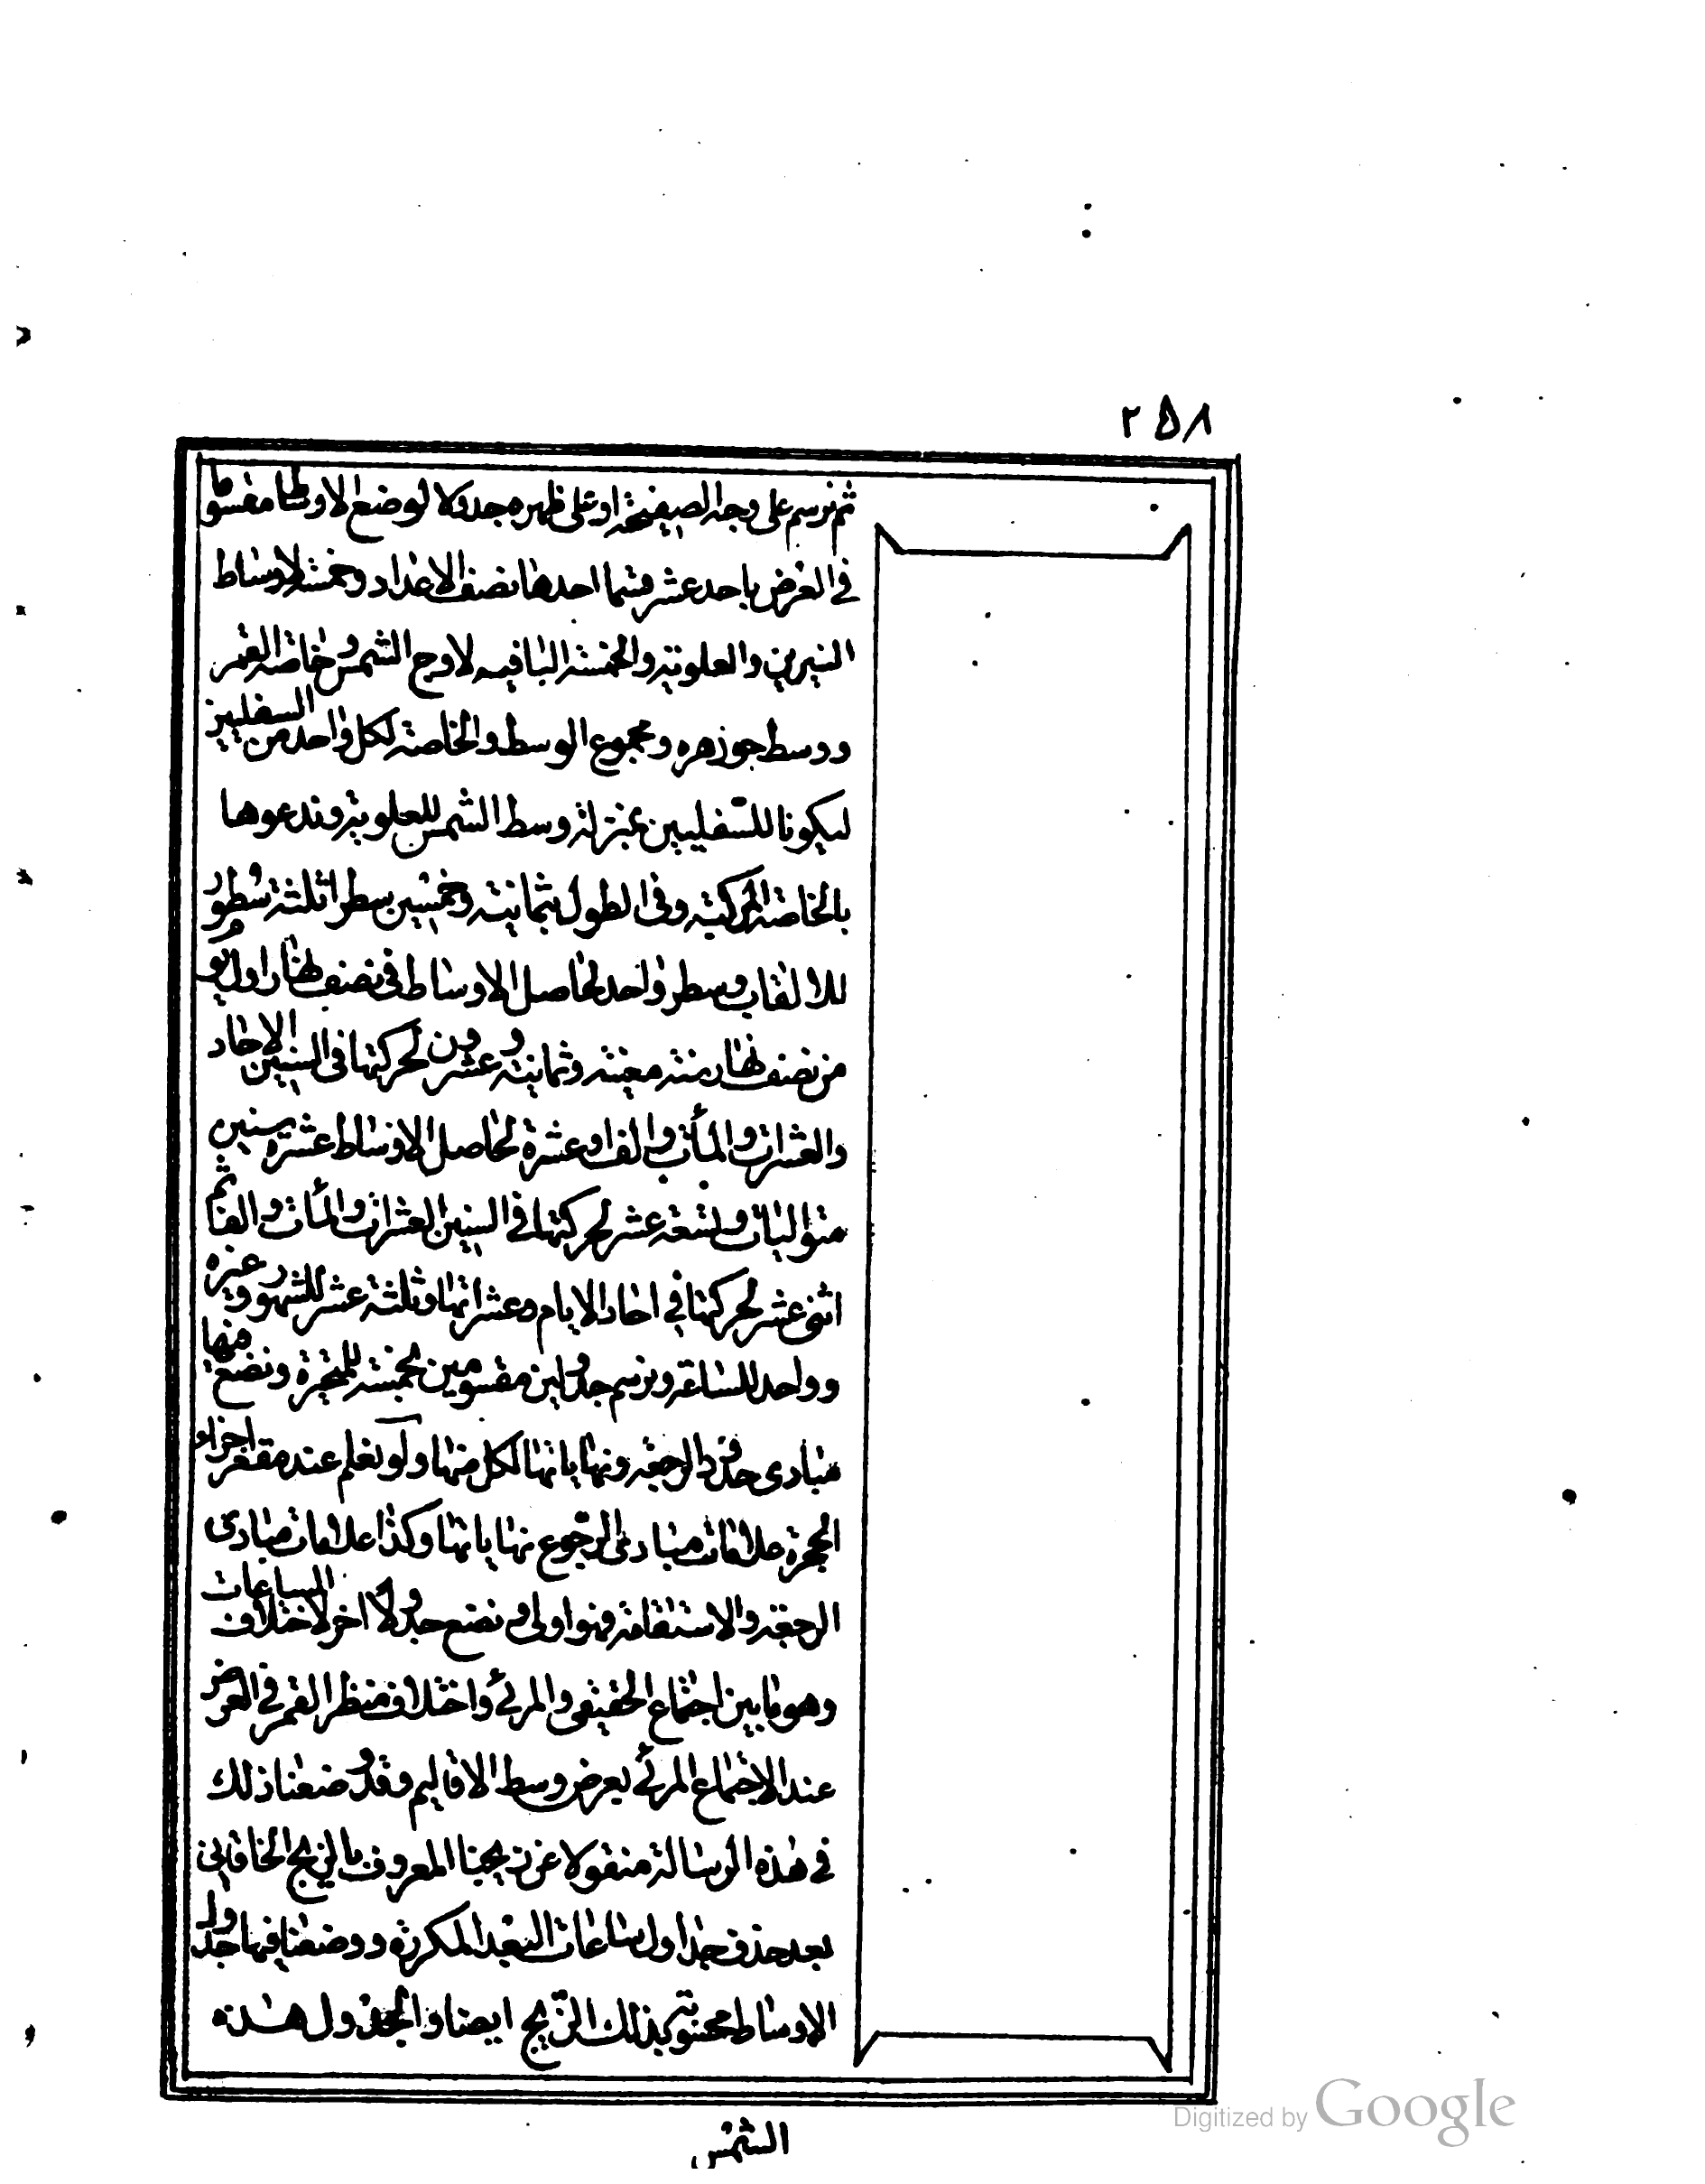 ٢٥٨
ثم نرسم على وجه الصفيحة او على ظهره جدولا لوضع الاوساط مقسوما
في العرض باحد عشر قسما احدها نصف الاعداد وخمسة لاوساط
النيرين والعلوية والخمسة الباقية لاوج الشمس وخاصة القمر
ووسط جوزهره ومجموع الوسط والخاصة لكل واحد من السفليين
ليكونا للسفليين بمنزلة وسط الشمس للعلوية وندعوها
بالخاصة المركبة وفى الطول بثمانية وخمسين سطرا ثلثة سطور
للالقاب وسطر واحد لحاصل الاوساط في نصف نهار اول يوم
من نصف نهار سنة معينة وثمانية وعشرون لحركتها فى السنين الاحاد
والعشرات والمأت والف وعشرة لحاصل الاوساط عشرة سنين
متواليات وتسعة عشر لحركتها في السنين العشرات والمأت والف ثم
اثنى عشر لحركتها في احاد الايام وعشراتها وثلثة عشر للشهور وغيره
وواحد للساعة ونرسم جدولين مقسومين بخمسة للمتحيرة ونضع فيها
مبادى حدود الرجعة ونهاياتها لكل منها ولو نعلم عند مقعر اجزاء
الحجرة علامات مبادى الرجوع نهاياتها وكذا علامات مبادى
الرجعة والاستقامة فهو اولى ونضع جدولا اخر لاختلاف الساعات
وهو ما بين اجتماع الحقيقى والمرئى واختلاف منظر القمر في العرض
عند الاجتماع المرئى بعرض وسط الاقاليم وقد وضعنا ذلك
في هذه الرسالة منقولا عن زيجنا المعروف بالزيج الخاقانى
بعد حذف جداول ساعات البعد المكررة ووضعنا فيها جداول
الاوساط محسوبة بذلك الزيج ايضا والجدول هذه
الشمس